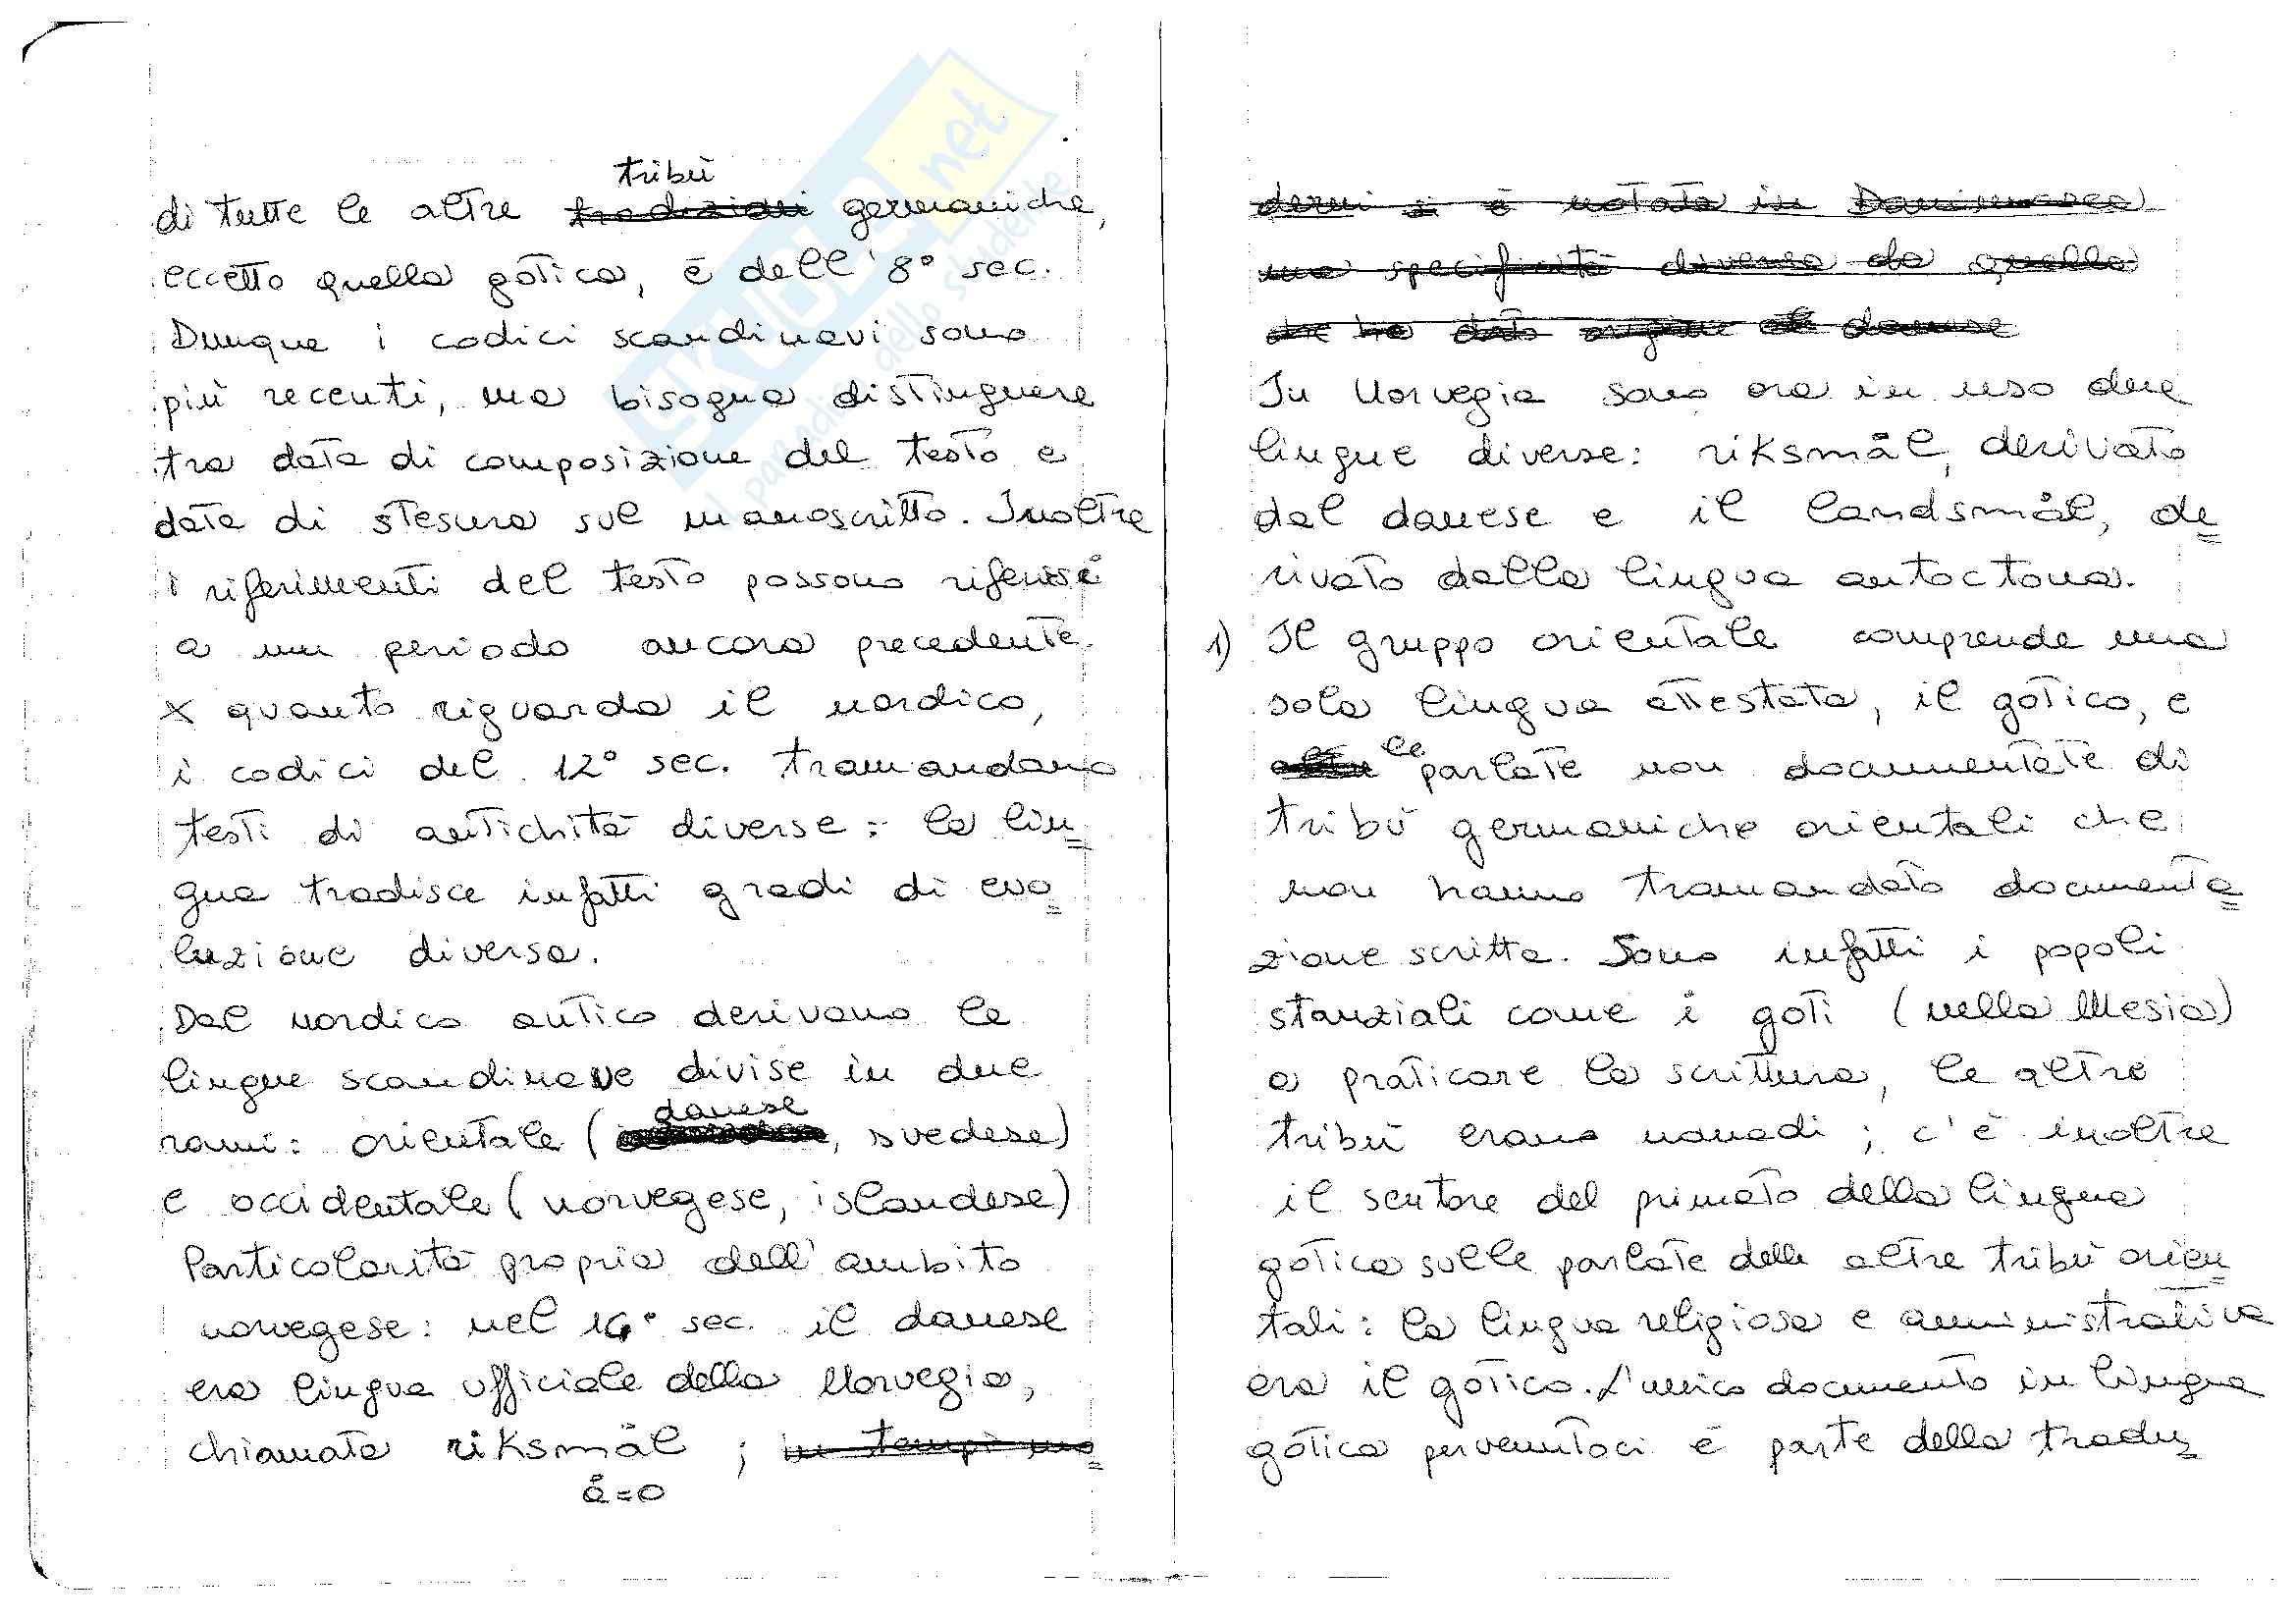 tribù
di tutte le altre tradizioni germaniche,
eccetto quella gotica, è dell'8° sec.
Dunque i codici scandinavi sono
più recenti, ma bisogna distinguere
tra data di composizione del testo e
data di stesura sul manoscritto. Inoltre
i riferimenti del testo possono riferirsi
a un periodo ancora precedente.
x quanto riguarda il nordico,
i codici del 12° sec. tramandano
testi di antichità diverse: la lin=
gua tradisce infatti gradi di evo=
luzione diversa.
Dal nordico antico derivano le
lingue scandinave divise in due
danese
rami: orientale (, svedese)
e occidentale (norvegese, islandese)
Particolarità propria dell'ambito
norvegese: nel sec. il danese
era lingua ufficiale della Norvegia,
chiamata riksmål ; in tempi mo=
å=o
derni si è notata in Danimarca
una specificità diversa da quella
che ha dato origine al danese
In Norvegia sono ora in uso due
lingue diverse: riksmål, derivato
dal danese e il landsmål, de=
rivato dalla lingua autoctona.
1) Il gruppo orientale comprende una
sola lingua attestata, il gotico, e
le parlate non documentate di
tribù germaniche orientali che
non hanno tramandato documenta=
zione scritta. Sono infatti i popoli
stanziali come i goti (nella Mesia)
a praticare la scrittura, le altre
tribù erano nomadi; c'è inoltre
il sentore del primato della lingua
gotica sulle parlate delle altre tribù orien=
tali: la lingua religiosa e amministrativa
era il gotico. L'unico documento in lingua
gotica pervenutoci è parte della tradu=
SKUOLA.net
il paradiso dello studente